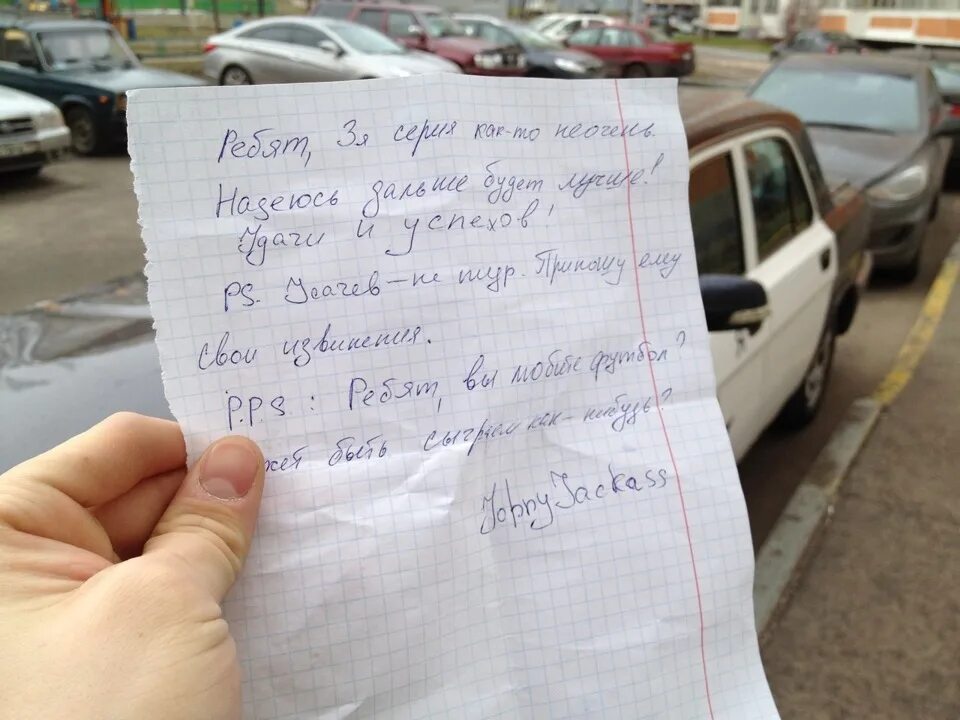 Ребят, 3я серия как-то неочень.
Надеюсь дальше будет лучше!
Удачи и успехов!
PS. Усачев – не тур. Приношу ему
свои извинения.
P.P.S: Ребят, вы любите футбол?
жет быть сыграем как-нибудь?
Johny Jackass